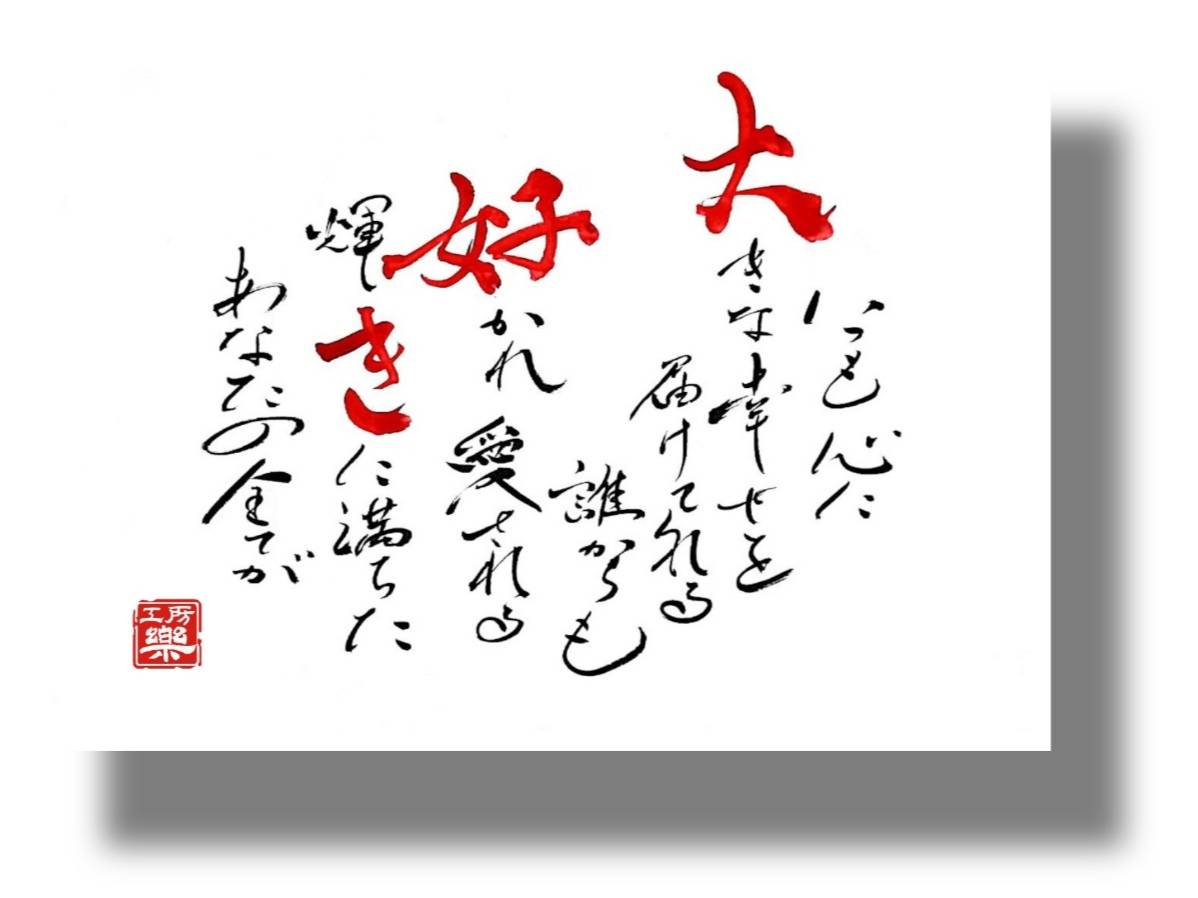 いつも心に
大きな幸せを
届けてくれる
誰からも
好かれ愛される
輝きに満ちた
あなたの全てが
工房
樂